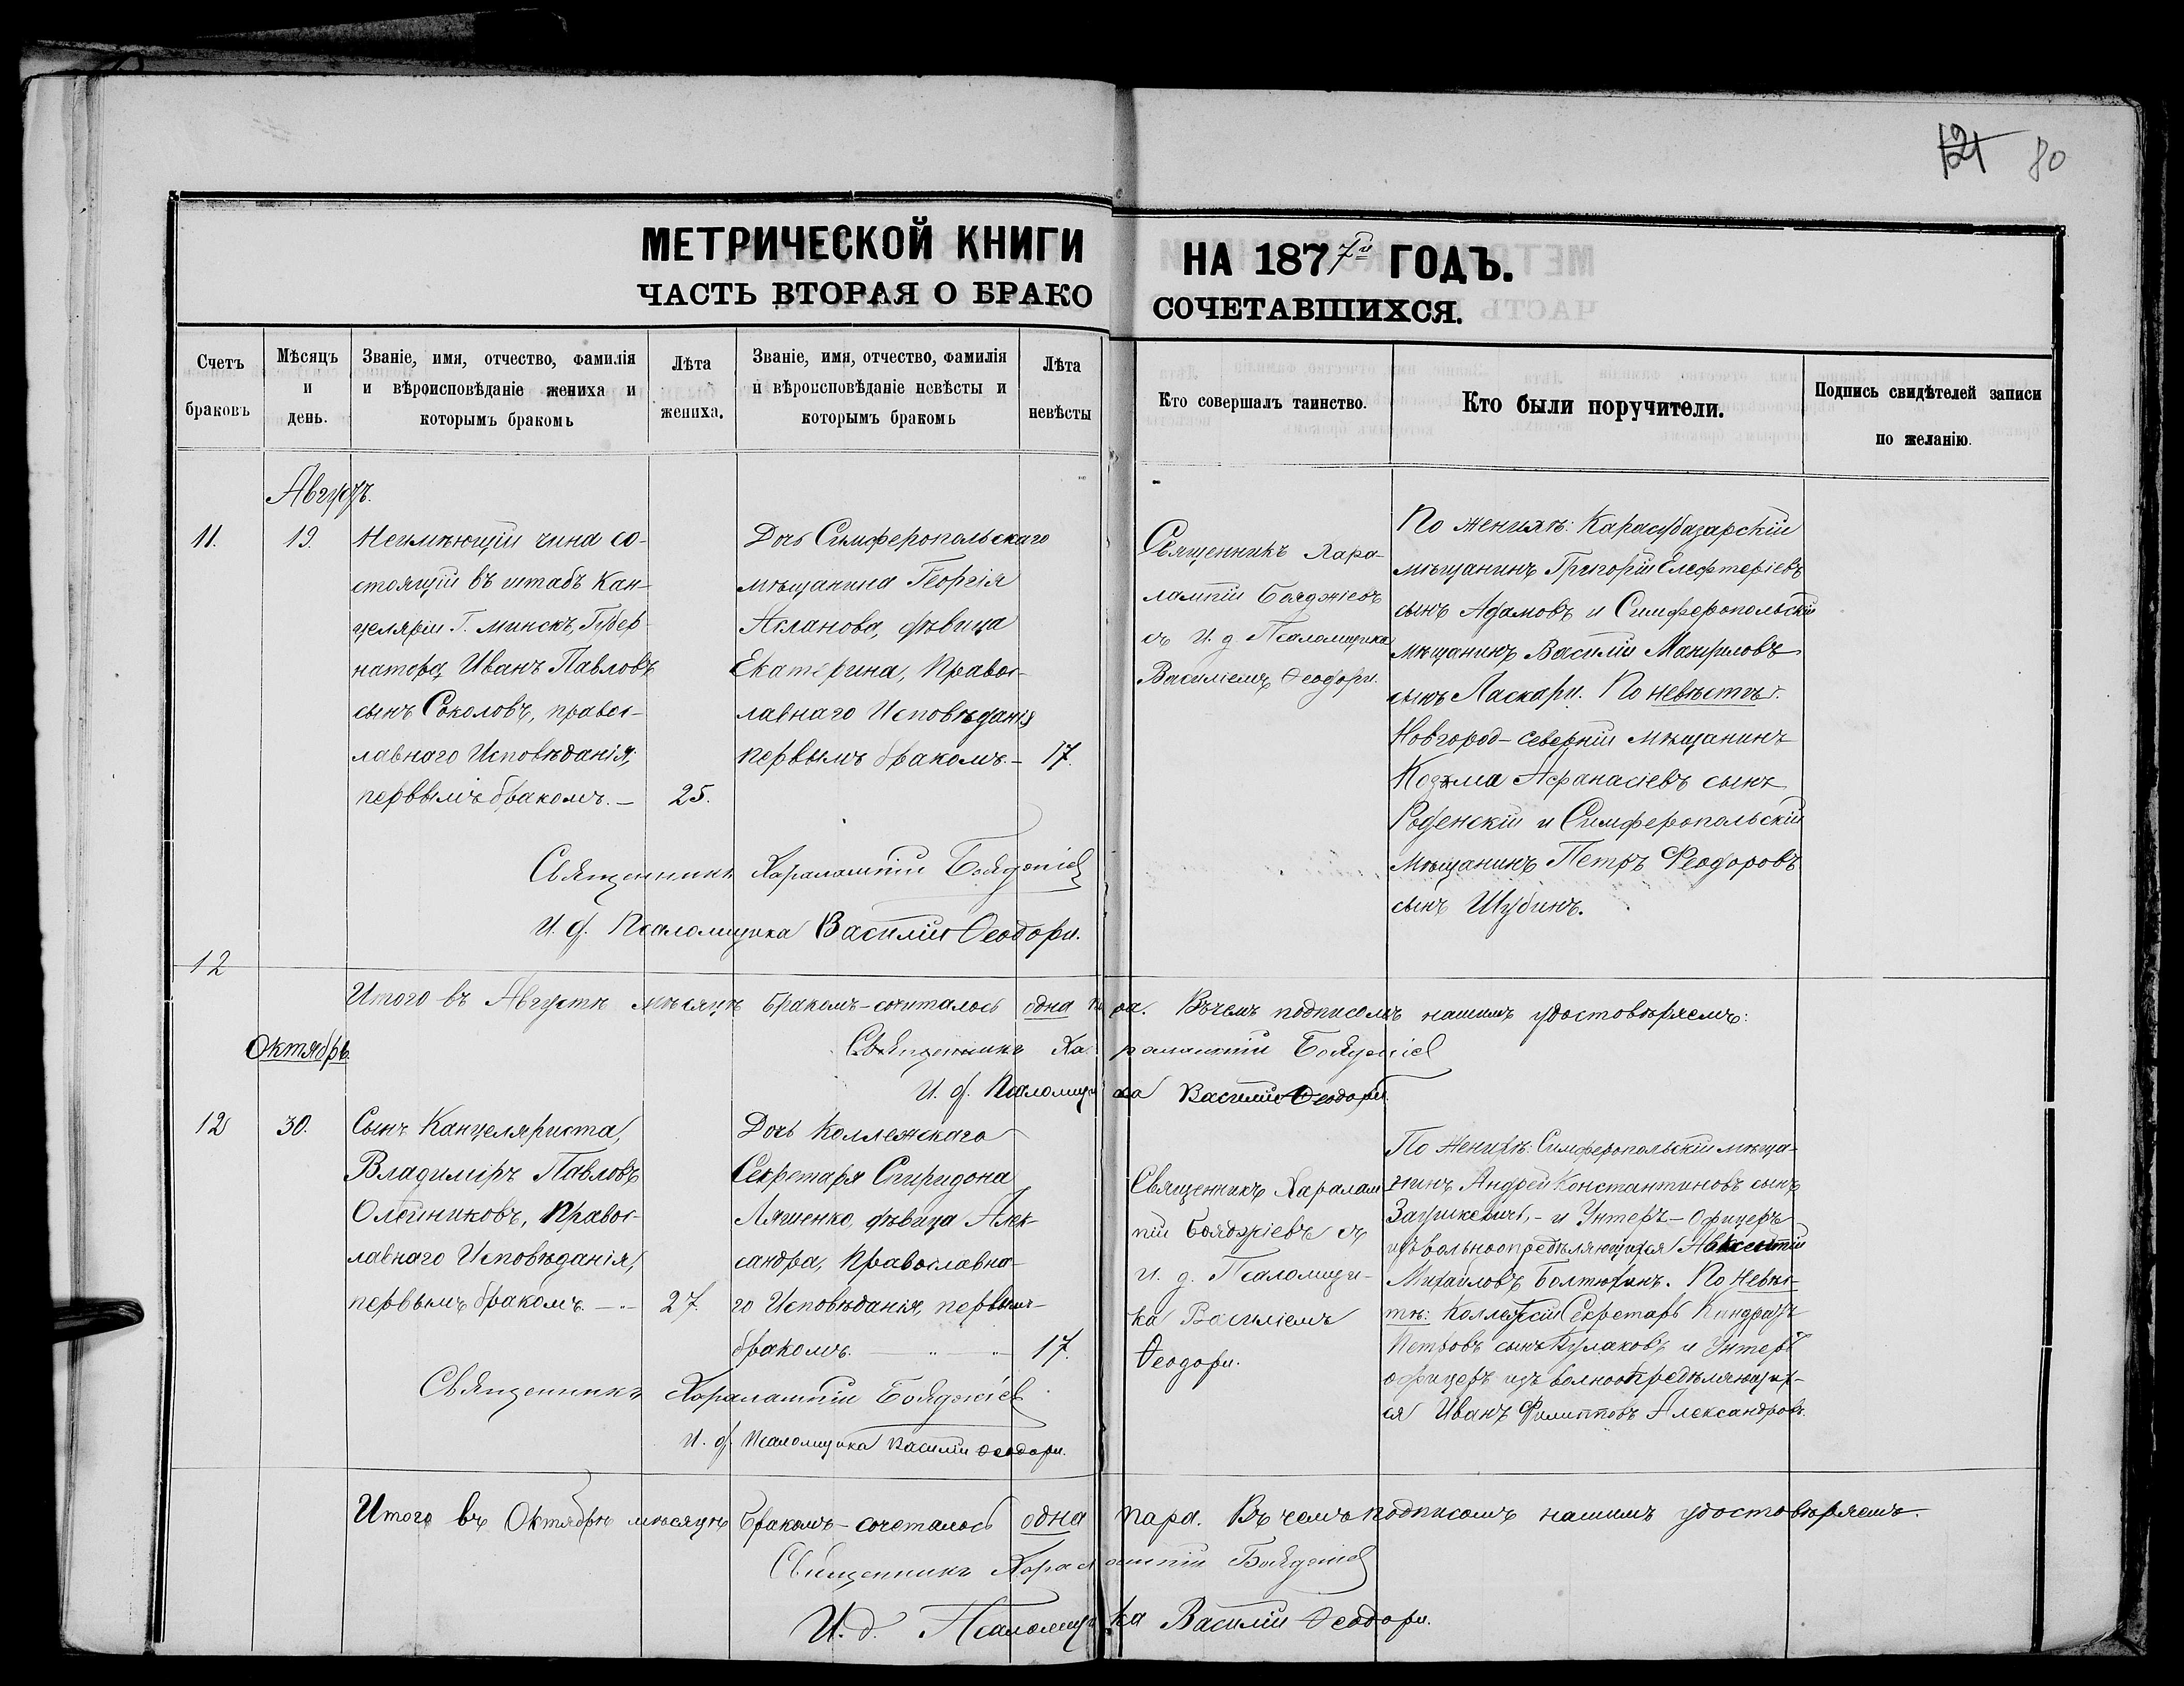 121 80
МЕТРИЧЕСКОЙ КНИГИ НА 1877й ГОДЪ.
ЧАСТЬ ВТОРАЯ О БРАКОСОЧЕТАВШИХСЯ.
Счетъ браковъ
Мѣсяцъ и день.
Званіе, имя, отчество, фамилія
и вѣроисповѣданіе жениха и
которымъ бракомъ
Лѣта жениха.
Званіе, имя, отчество, фамилія
и вѣроисповѣданіе невѣсты и
которымъ бракомъ
Лѣта невѣсты
Кто совершалъ таинство.
Кто были поручители.
Подпись свидѣтелей записи
по желанію.
Августъ.
11.
19.
Неимѣющій чина со-
стоящій въ штабѣ Кан-
целяріи Г. Минскъ, Губер-
натора, Иванъ Павловъ
сынъ Соколовъ, правос-
лавнаго Исповѣданія,
первымъ бракомъ. —
25.
Дочь Симферопольскаго
мѣщанина Георгія
Асланова, дѣвица
Екатерина, Правос-
лавнаго Исповѣданія
первымъ бракомъ. —
17.
Священникъ Хара-
лампій Бояджіевъ
съ И. д. Псаломщика
Василіемъ Ѳеодори.
По женихѣ: Карасубазарскій
мѣщанинъ Григорій Елефтеріевъ
сынъ Адамовъ и Симферопольскій
мѣщанинъ Василій
сынъ Ласкари. По невѣстѣ:
Новгород-северній мѣщанинъ
Козьма Афанасіевъ сынъ
и Симферопольскій
Мѣщанинъ Петръ Феодоровъ
сынъ Шубинъ.
Священникъ Харалампій Бояджіев
И. д. Псаломщика Василій Ѳеодори.
12
Итого въ Августѣ мѣсяцѣ бракомъ-сочиталось одна пара. Въ чемъ подписомъ нашимъ удостовѣряемъ:
Священникъ Харалампій Бояджіев
И. д. Псаломщика Василій Ѳеодори.
Октябрь.
12
30.
Сынъ Канцеляриста,
Владиміръ Павловъ
Олейниковъ, Правос-
лавнаго Исповѣданія,
первымъ бракомъ. —
27.
Дочь Коллежскаго
Секретаря Спиридона
Ляшенко, дѣвица Алек-
сандра, Православна-
го Исповѣданія, первымъ-
бракомъ. —
17.
Священникъ Харалам-
пій Бояджіевъ съ
и. д. Псаломщи-
ка Василіемъ
Ѳеодори.
По Женихѣ: Симферопольскій мѣща-
нинъ Андрей Константиновъ сынъ
и Унтеръ-Офицеръ
изъ вольноопредѣляющихся Авксентій
Михайловъ Болтюхинъ. По Невѣс-
тѣ: Коллежскій Секретарь Киндратъ
Петровъ сынъ Кулаковъ и Унтеръ
офицеръ изъ волноопредѣляющих-
ся Иванъ Филипповъ Александровъ.
Священникъ Харалампій Бояджіев
И. д. Псаломщика Василій Ѳеодори.
Итого въ Октябрѣ мѣсяцѣ Бракомъ-сочеталось одна пара. Въ чемъ подписомъ нашимъ удостовѣряемъ.
Священникъ Харалампій Бояджіев
И. д. Псаломщика Василій Ѳеодори.